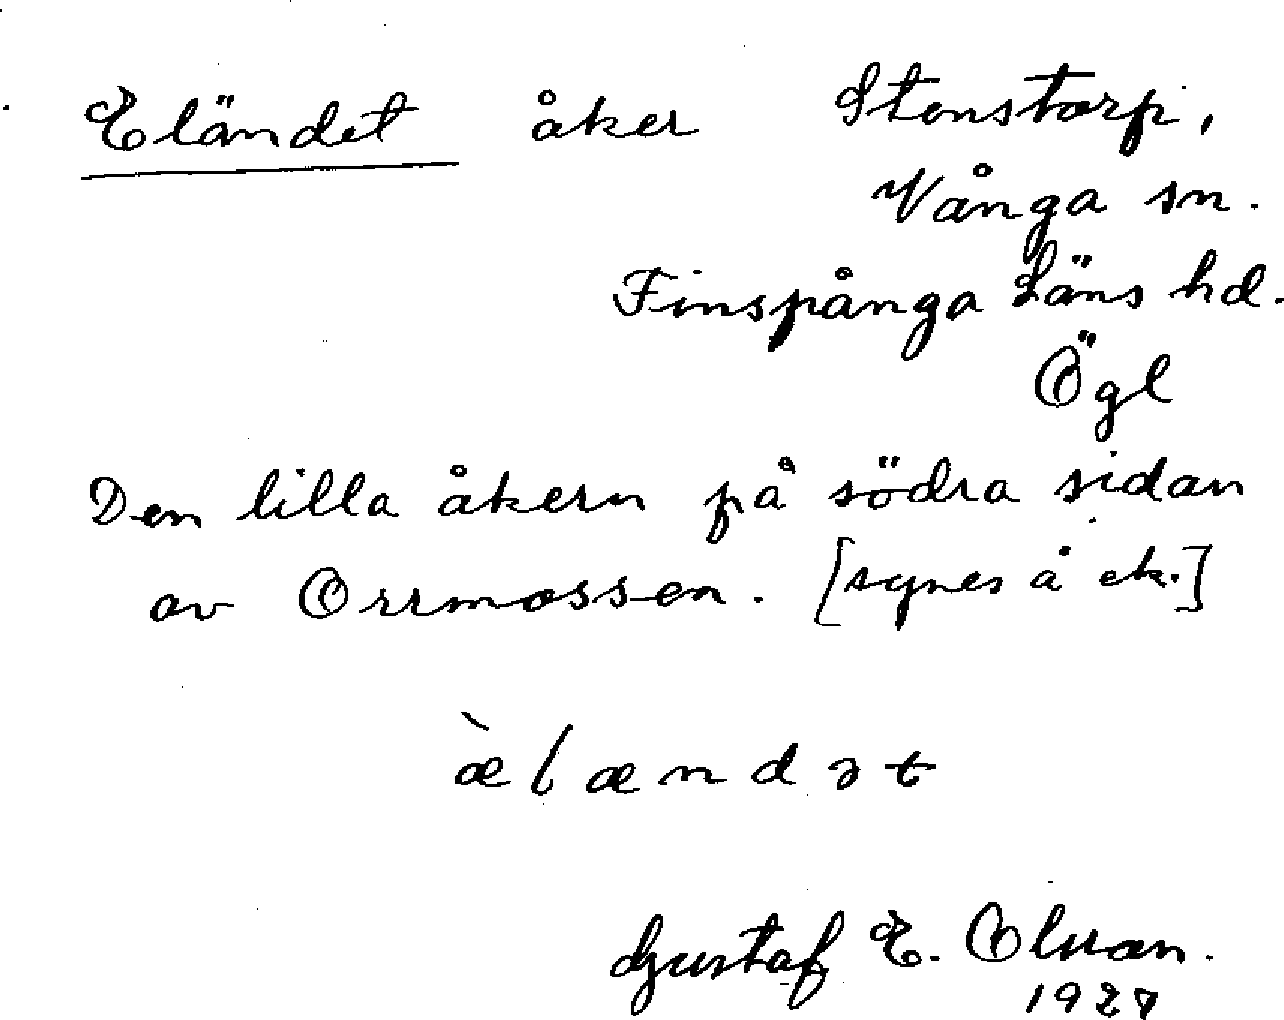 Eländet åker Stenstorp,
Vånga sn.
Finspånga Läns hd.
Ögl
Den lilla åkern på södra sidan
av Orrmossen. [synes å ek.]
æ̀lændət
Gustaf E. Olsson.
1927